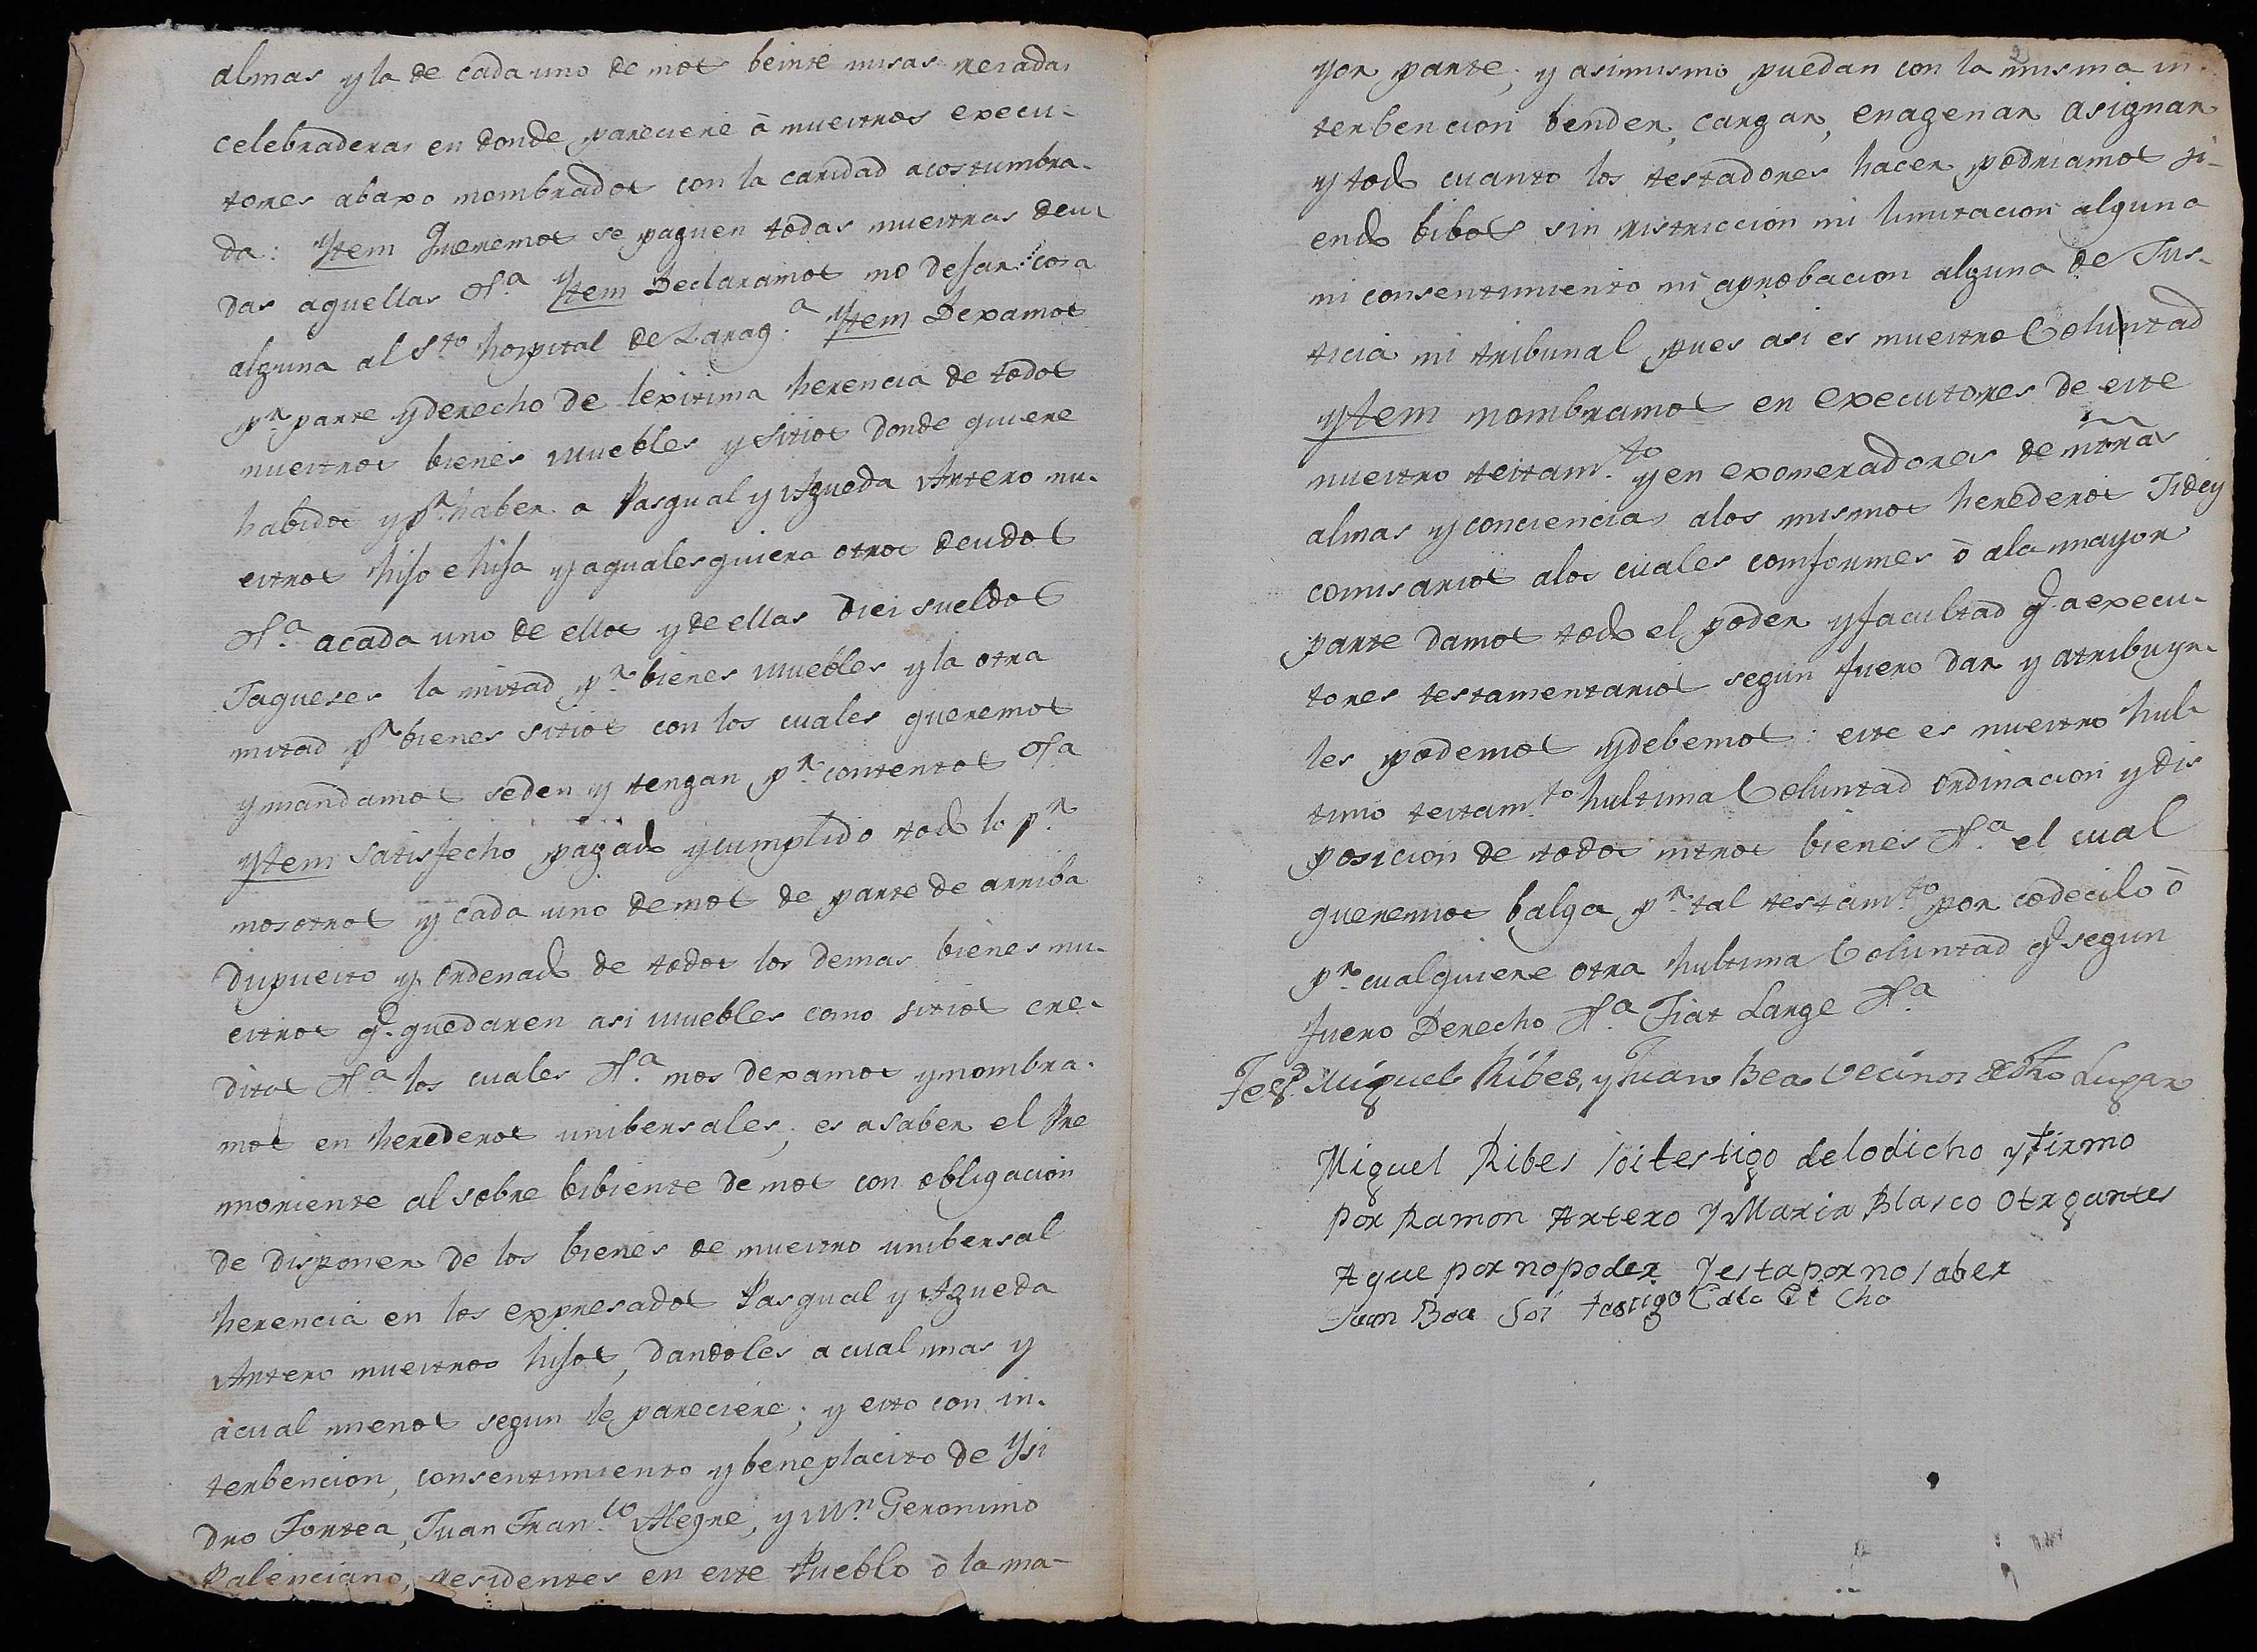 almas y la de cada uno de nos beinte misas reradas
celebraderas en donde pareciere à nuestros execu-
tores abaxo nombrados con la caridad acostumbra-
da: Ytem Queremos se paguen todas nuestras deu
das aquellas &ª Ytem Declaramos no dejar cosa
alguna al Sto hospital de Zaragª. Ytem Dexamos
pr parte y derecho de lexitima herencia de todos
nuestros bienes muebles y sitios donde quiere
habidos y pr haber a Pasqual y Agueda Artero nu-
estros hijo e hija y aqualesquiera otros deudos
&ª acada uno de ellos y de ellas diei sueldos
Jaqueses la mitad pr bienes muebles y la otra
mitad pr bienes sitios con los cuales queremos
y mandamos seden y tengan pr contentos &ª
Ytem satisfecho pagado y cumplido todo lo pr
nosotros y cada uno de nos de parte de arriba
dispuesto y ordenado de todos los demas bienes nu-
estros q. quedaren asi muebles como sitios cre-
ditos &ª los cuales &ª nos dexamos y nombra-
mos en herederos unibersales; es a saber el Pre
moriente al sobre bibiente de nos con obligacion
de disponer de los bienes de nuestro unibersal
herencia en los expresados Pasqual y Agueda
Artero nuestros hijos, dandoles a cual mas y
acual menos segun le pareciere; y esto con in-
terbencion, consentimiento y beneplacito de Ysi
dro Fortea, Juan Franco Alegre, y Mn Geronimo
Palenciano, residentes en este Pueblo ò la ma-
yor parte; y asimismo puedan con la misma in-
terbencion bender, cargar, enagenar asignar
y todo cuanto los testadores hacer podriamos si-
endo bibos sin ristriccion ni limitacion alguna
ni consentimiento ni aprobacion alguna de Jus-
ticia ni tribunal pues asi es nuestro Voluntad
Ytem nombramos en executores de este
nuestro testamto y en exoneradores de ntras
almas y conciencias alos mismos herederos Fidey
comisarios alos cuales comformes ò ala mayor
parte damos todo el poder y facultad q. a execu-
tores testamentarios segun fuero dar y atribuyr-
les podemos y debemos: este es nuestro hul-
timo testamto hultima Voluntad ordinacion y dis
posicion de todos ntros bienes &ª el cual
queremos balga pr tal testamto por codecilo ò
pr cualquiere otra hultima Voluntad q. segun
fuero Derecho &ª Fiat Large &ª
Miguel Ribes, y Juan Bea Vecinos de dho Lugar
Miguel Ribes soi testigo delodicho y firmo
por Ramon Artero Y Maria Blasco Otrgantes
Aque por nopoder Yesta por no saber
Juan Bea Soi testigo Edlo Di cho